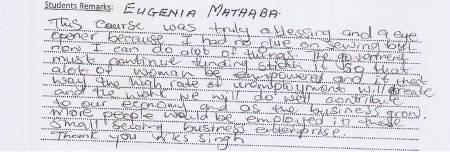 Students Remarks: EUGENIA MATHABA.
This course was truly a blessing and a eye
opener because I had no clue on sewing but
now I can do alot of work. The goverment
must continue funding
alot of woman be empowered and in that
way the high rate of unemployment will
and the will do well contribute
to our economy and as the business grow.
More people would be employed in these
small sewing business enterprise.
Thank you Mrs Singh